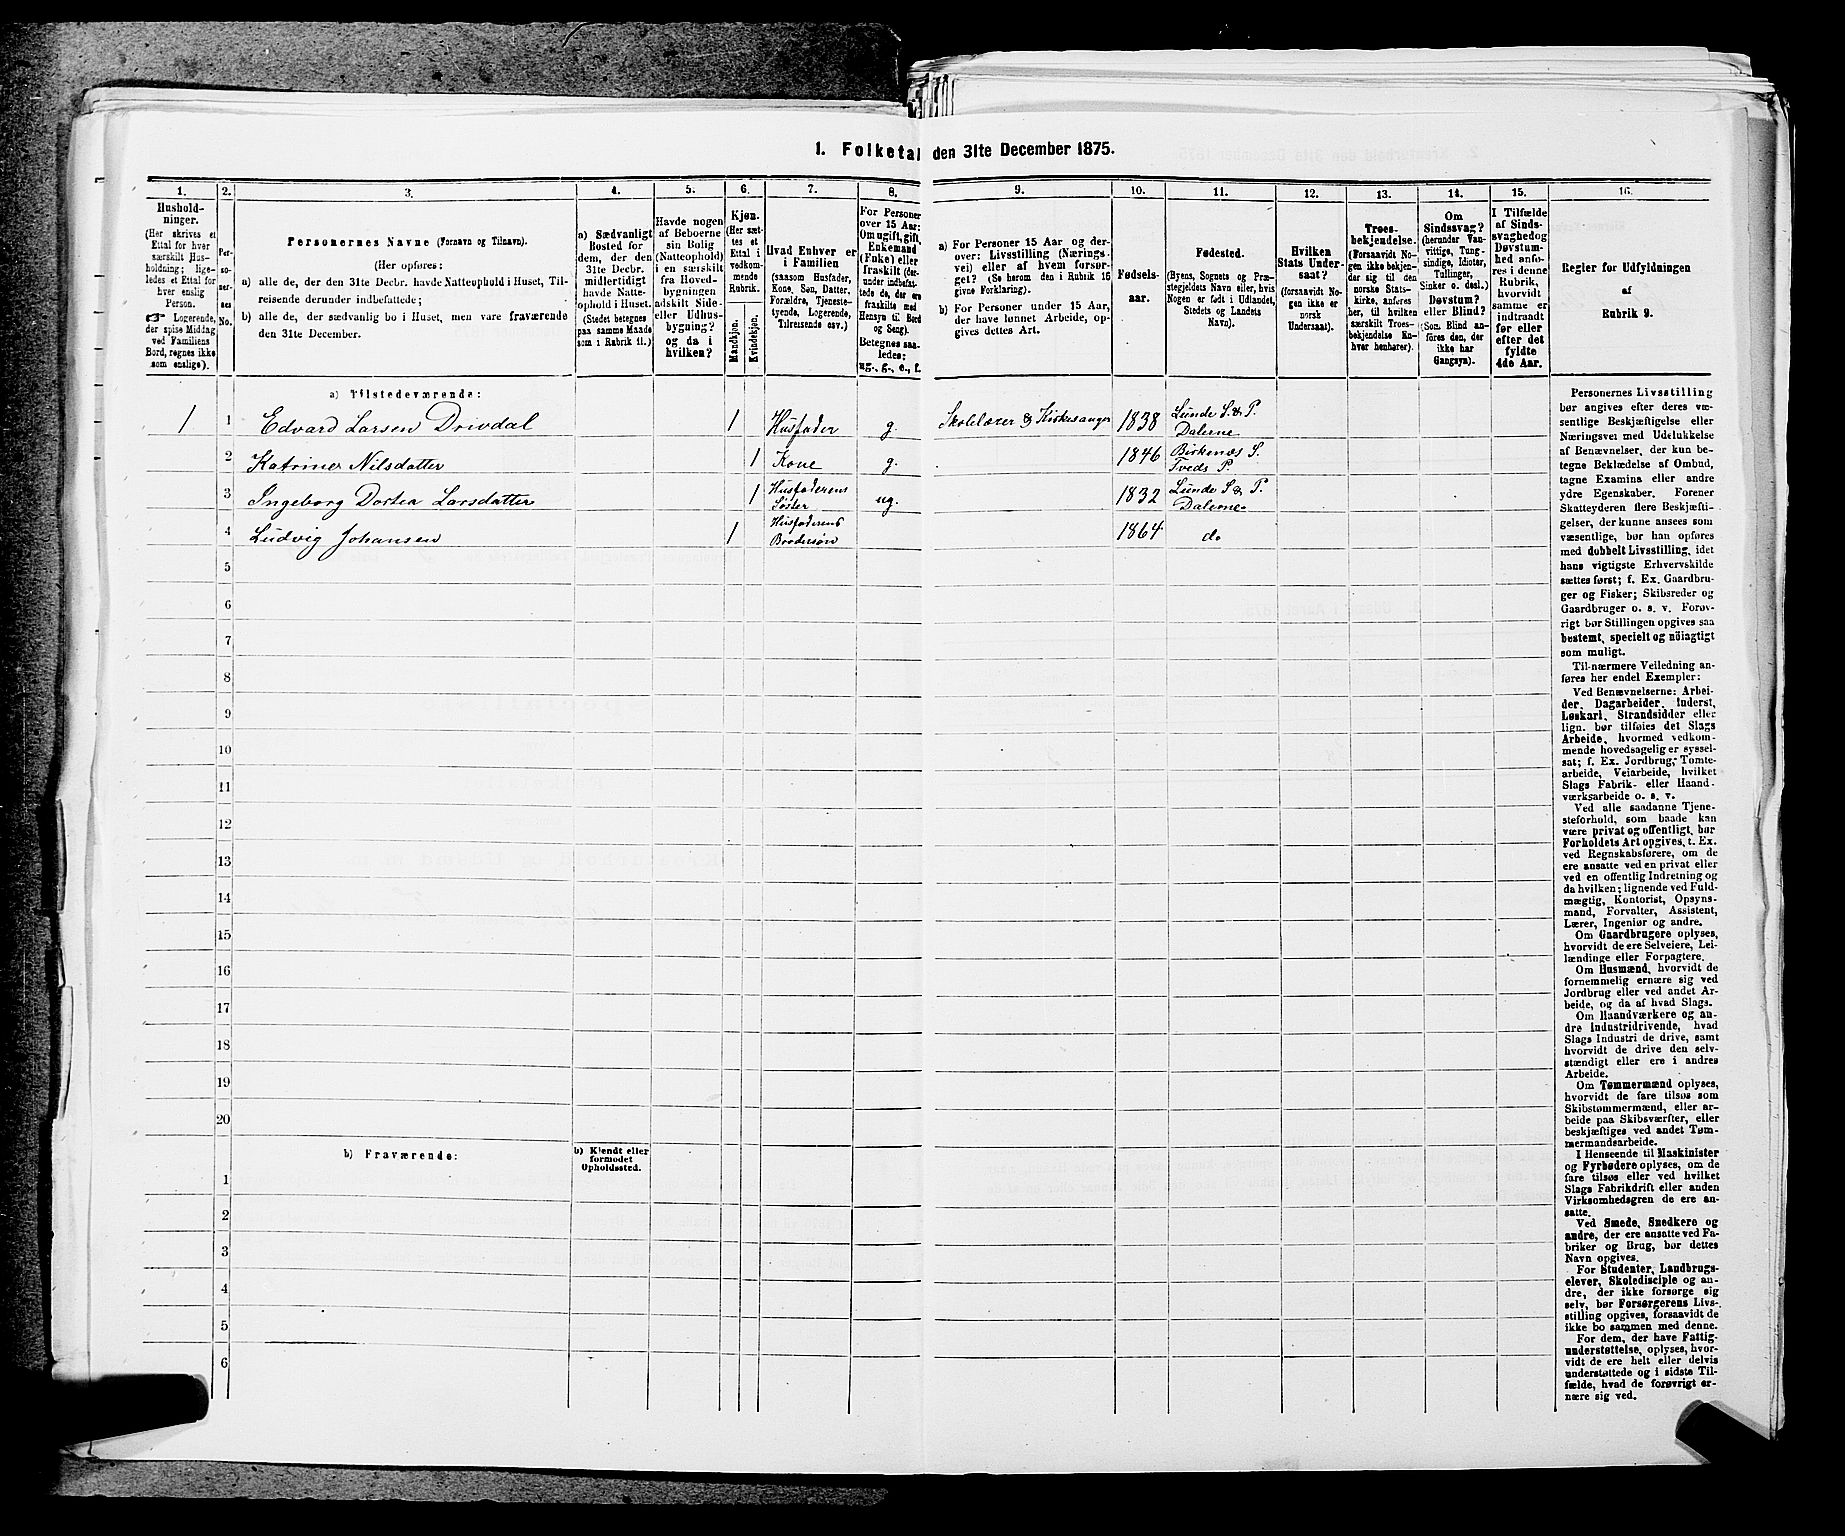 1. Folketal den 31te December 1875.
1. 2. 3. 4. 5. 6. 7. 8. 9. 10. 11. 12. 13. 14. 15. 16.
Hushold-
ninger.
(Her skrives et
Ettal for hver
særskilt Hus-
holdning; lige-
ledes et Ettal for
hver enslig
Person.
Logerende,
der spise Middag
ved Familiens
Bord, regnes ikke
som enslige).
Per-
so-
ner-
nes
No.
Personernes Navne (Fornavn og Tilnavn).
(Her opføres:
a) alle de, der den 31te Decbr. havde Natteophold i Huset, Til-
reisende derunder indbefattede;
b) alle de, der sædvanlig bo i Huset, men vare fraværende
den 31te December.
a) Sædvanligt
Bosted for
dem, der den
31te Decbr.
midlertidigt
havde Natte-
ophold i Huset.
(Stedet betegnes
paa samme Maade
som i Rubrik 11.)
Havde nogen
af Beboerne
sin Bolig
(Natteophold)
i en særskilt
fra Hoved-
bygningen
adskilt Side-
eller Udhus-
bygning?
og da i
hvilken?
Kjøn.
(Her sæt-
tes et
Ettal i
vedkom-
mende
Rubrik.
Mandkjøn.
Kvindekjøn.
Hvad Enhver er
i Familien
(saasom Husfader,
Kone, Søn, Datter,
Forældre, Tjeneste-
tyende, Logerende,
Tilreisende osv.)
For Personer
over 15 Aar:
Om ugift, gift,
Enkemand
(Enke) eller
fraskilt (der-
under indbefat-
tede de, der ere
fraskilte med
Hensyn til Bord
og Seng).
Betegnes saa-
ledes:
ug., g., e., f.
a) For Personer 15 Aar og der-
over: Livsstilling (Nærings-
vei) eller af hvem forsør-
get? (Se herom den i Rubrik 16
givne Forklaring).
b) For Personer under 15 Aar,
der have lønnet Arbeide, op-
gives dettes Art.
Fødsels-
aar.
Fødested.
(Byens, Sognets og Præ-
stegjeldets Navn eller, hvis
Nogen er født i Udlandet,
Stedets og Landets
Navn).
Hvilken
Stats Under-
saat?
(forsaavidt No-
gen ikke er
norsk
Undersaat).
Troes-
bekjendelse.
(Forsaavidt No-
gen ikke bekjen-
der sig til den
norske Stats-
kirke, anføres
her, til hvilken
særskilt Troes-
bekjendelse En-
hver henhører).
Om
Sindssvag?
(herunder Van-
vittige, Tung-
sindige, Idioter,
Tullinger,
Sinker o. desl.)
Døvstum?
eller Blind?
(Som Blind an-
føres den, der
ikke har
Gangsyn).
I Tilfælde
af Sinds-
svaghed og
Døvstum-
hed anfø-
res i denne
Rubrik,
hvorvidt
samme er
indtraadt
før eller
efter det
fyldte
4de Aar.
Regler for Udfyldningen
af
Rubrik 9.
a) Tilstedeværende:
1 1 Edvard Larsen Drivdal 1 Husfader g. Skolelærer & Kirkesanger 1838 Lunde S. & P.
Dalerne
2 Katrine Nilsdatter 1 Kone g. 1846 Birkenæs S.
Tveds P.
3 Ingeborg Dortea Larsdatter 1 Husfaderens
Søster ug. 1832 Lunde S & P.
Dalerne
4 Ludvig Johansen 1 Husfaderens
Brodersøn 1864 do
5
6
7
8
9
10
11
12
13
14
15
16
17
18
19
20
b) Fraværende:
b) Kjendt eller
formodet
Opholdssted.
1
2
3
4
5
6
Personernes Livsstilling
bør angives efter deres væ-
sentlige Beskjæftigelse eller
Næringsvei med Udelukkelse
af Benævnelser, der kun be-
tegne Beklædelse af Ombud,
tagne Examina eller andre
ydre Egenskaber. Forener
Skatteyderen flere Beskjæfti-
gelser, der kunne ansees som
væsentlige, bør han opføres
med dobbelt Livsstilling, idet
hans vigtigste Erhvervskilde
sættes først; f. Ex. Gaardbru-
ger og Fisker; Skibsreder og
Gaardbruger o. s. v. Forøv-
rigt bør Stillingen opgives saa
bestemt, specielt og nøiagtigt
som muligt.
Til nærmere Veiledning an-
føres her endel Exempler:
Ved Benævnelserne: Arbei-
der, Dagarbeider, Inderst,
Løskarl, Strandsidder eller
lign. bør tilføies det Slags
Arbeide, hvormed vedkom-
mende hovedsagelig er syssel-
sat; f. Ex. Jordbrug, Tomte-
arbeide, Veiarbeide, hvilket
Slags Fabrik- eller Haand-
værksarbeide o. s. v.
Ved alle saadanne Tjene-
steforhold, som baade kan
være privat og offentligt, bør
Forholdets Art opgives, t. Ex.
ved Regnskabsførere, om de
ere ansatte ved en privat eller
ved en offentlig Indretning og
da hvilken; lignende ved Fuld-
mægtig, Kontorist, Opsyns-
mand, Forvalter, Assistent,
Lærer, Ingeniør og andre.
Om Gaardbrugere oplyses,
hvorvidt de ere Selveiere, Lei-
lændinge eller Forpagtere.
Om Husmænd, hvorvidt de
fornemmelig ernære sig ved
Jordbrug eller ved andet Ar-
beide, og da af hvad Slags.
Om Haandværkere og an-
dre Industridrivende, hvad
Slags Industri de drive, samt
hvorvidt de drive den selv-
stændigt eller ere i andres
Arbeide.
Om Tømmermænd oplyses,
hvorvidt de fare tilsøs som
Skibstømmermænd, eller ar-
beide paa Skibsværfter, eller
beskjæftiges ved andet Tøm-
mermandsarbeide.
I Henseende til Maskinister
og Fyrbødere oplyses, om de
fare tilsøs eller ved hvilket
Slags Fabrikdrift eller anden
Virksomhedsgren de ere an-
satte.
Ved Smede, Snedkere og
andre, der ere ansatte ved Fa-
briker og Brug, bør dettes
Navn opgives.
For Studenter, Landbrugs-
elever, Skoledisciple og an-
dre, der ikke forsørge sig
selv, bør Forsørgerens Livs-
stilling opgives, forsaavidt de
ikke bo sammen med denne.
For dem, der have Fattig-
understøttelse, oplyses, hvor-
vidt de ere helt eller delvis
understøttede og i sidste Til-
fælde, hvad de forøvrigt er-
nære sig ved.